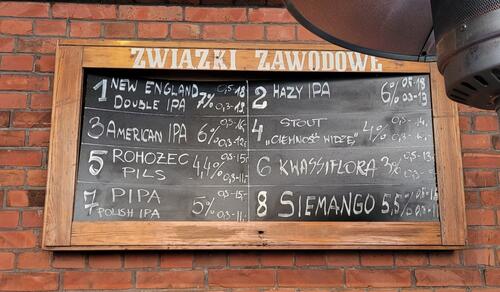 ZWIĄZKI ZAWODOWE
1 NEW ENGLAND DOUBLE IPA 7% 0,5-18
0,3-13
2 HAZY IPA 6% 0,5-18
0,3-13
3 AMERICAN IPA 6% 0,5-16,-
0,3-12,-
4 STOUT
„CIEMNOŚĆ WIDZĘ" 4% 0,5-14,-
0,3-
5 ROHOZEC PILS 4,4% 0,5-15,-
0,3-11,-
6 KWASSIFLORA 3% 0,5-15
0,3-11,-
7 PIPA
POLISH IPA 5% 0,5-15,-
0,3-11,-
8 SIEMANGO 5,5% 0,5-
0,3-11,-